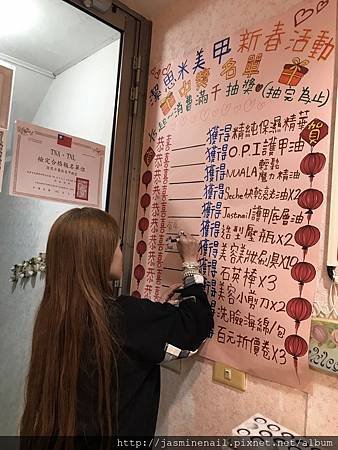 潔思米美甲 新春活動
中獎名單
消費滿千抽獎 (抽完為止)
恭喜 獲得精純保濕精華
恭喜 獲得O.P.I護甲油
恭喜 獲得NUALA輕鬆魔力精油
恭喜 獲得Seche快乾亮油X2
恭喜 獲得Jastnail護甲底層油
恭喜 獲得造型壓瓶X2
恭喜 獲得美容刷具X10
恭喜 獲得石英棒X3
獲得美容小剪刀X2
洗臉海綿1包
百元折價卷X3
賀
TNA·TNL
檢定合格報名單位
http://jasminenail.pixnet.net/album